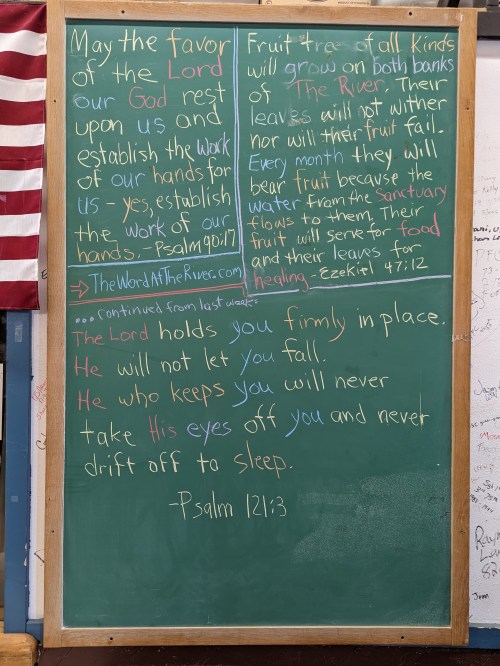 May the favor
of the Lord
our God rest
upon us and
establish the work
of our hands for
us - yes, establish
the work of our
hands. -Psalm 90:17
Fruit trees of all kinds
will grow on both banks
of The River. Their
leaves will not wither
nor will their fruit fail.
Every month they will
bear fruit because the
water from the Sanctuary
flows to them. Their
fruit will serve for food
and their leaves for
healing. -Ezekiel 47:12
→ TheWordAtTheRiver.com
...continued from last weeks
The Lord holds you firmly in place.
He will not let you fall.
He who keeps you will never
take His eyes off you and never
drift off to sleep.
-Psalm 121:3